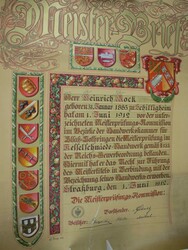 Meister=Brief
Herr Heinrich Koch
geboren 9. Januar 1885 zu Schiltigheim
hat am 1. Juni 1912 vor der unter=
zeichneten Meisterprüfungs=Kommission
im Bezirke der Handwerkskammer für
Elsaß=Lothringen die Meisterprüfung im
Messerschmiede=Handwerk gemäß § 133
der Reichs=Gewerbeordnung bestanden.
Hiermit hat er das Recht zur Führung
des Meistertitels in Verbindung mit der
Bezeichnung seines Handwerks erworben.
Straßburg, den 1. Juni 1912.
Die Meisterprüfungs=Kommission:
Vorsitzender.
Beisitzer: